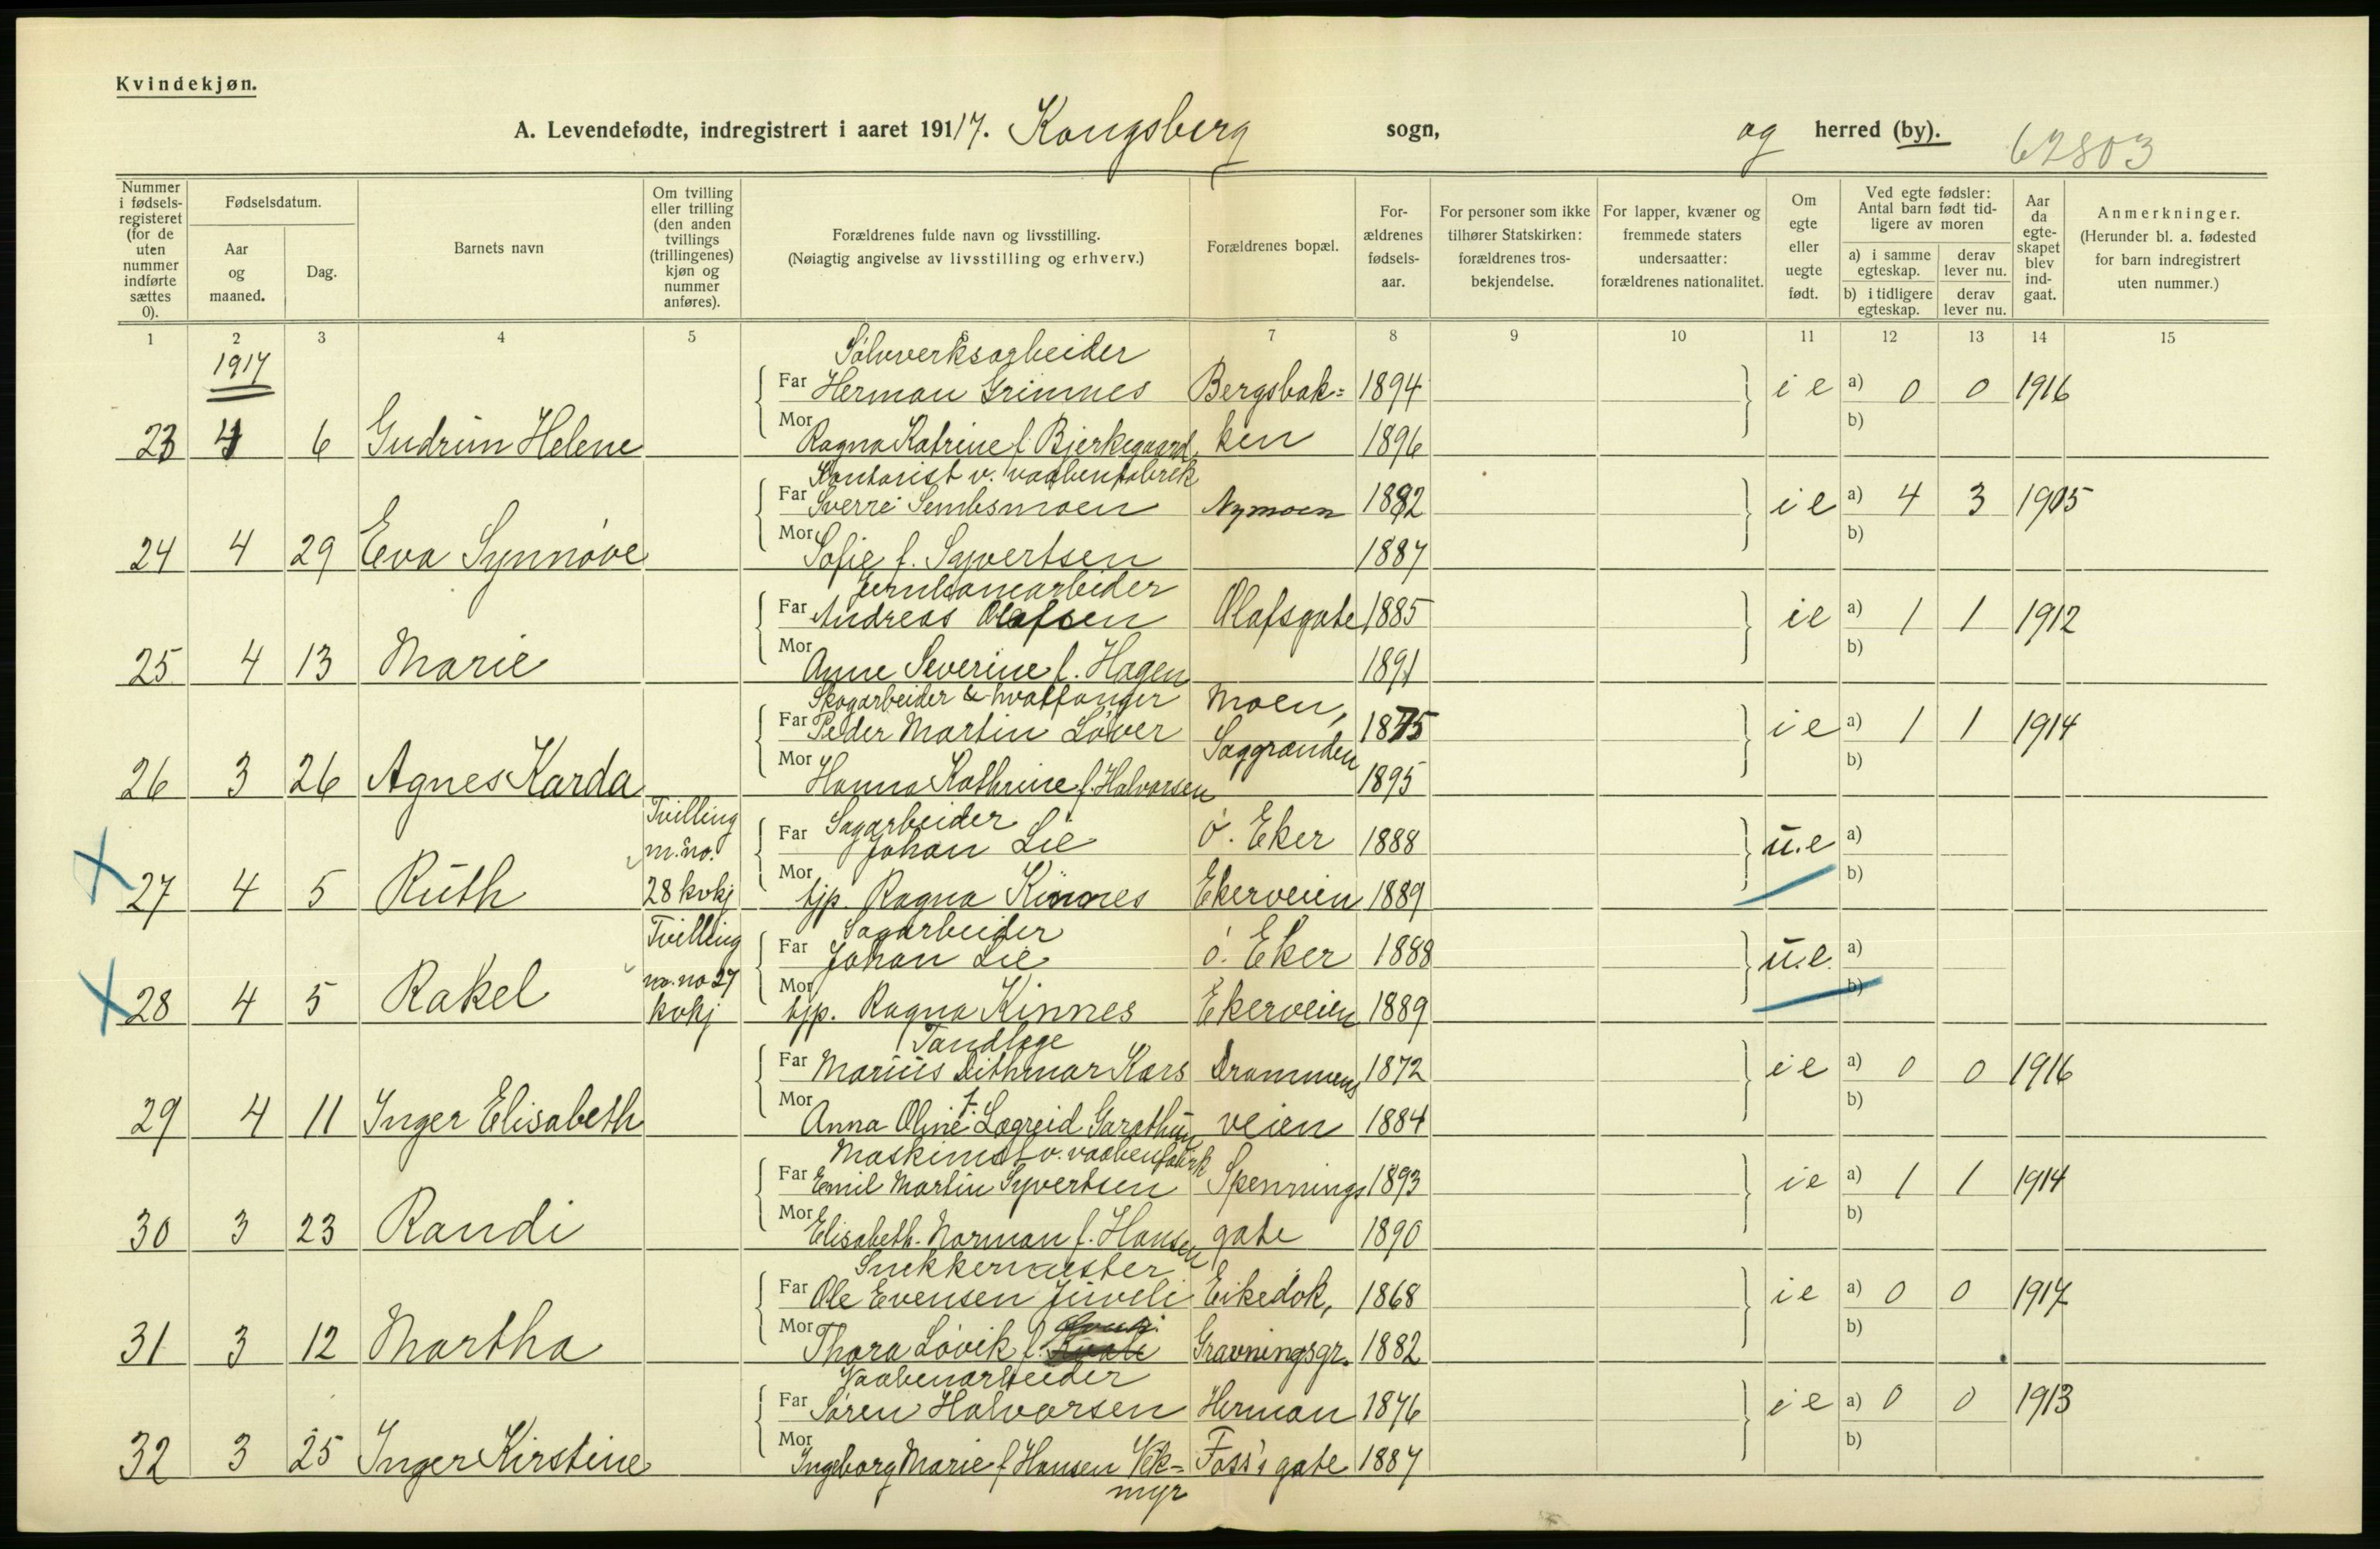 Kvindekjøn.
A. Levendefødte, indregistrert i aaret 1917. Kongsberg sogn, og herred (by). 62803
Nummer i fødselsregisteret (for de uten nummer indførte sættes 0).
Fødselsdatum.
Aar og maaned.
Dag.
Barnets navn
Om tvilling eller trilling (den anden tvillings (trillingenes) kjøn og nummer anføres).
Forældrenes fulde navn og livsstilling.
(Nøiagtig angivelse av livsstilling og erhverv.)
Forældrenes bopæl.
For-ældrenes fødsels-aar.
For personer som ikke tilhører Statskirken: forældrenes tros-bekjendelse.
For lapper, kvæner og fremmede staters undersaatter: forældrenes nationalitet.
Om egte eller uegte født.
Ved egte fødsler: Antal barn født tid-ligere av moren
a) i samme egteskap. derav lever nu.
b) i tidligere egteskap. derav lever nu.
Aar da egte-skapet blev ind-gaat.
Anmerkninger.
(Herunder bl. a. fødested for barn indregistrert uten nummer.)
1 2 3 4 5 6 7 8 9 10 11 12 13 14 15
1917
Sølvverksarbeider
Far Herman Grimnes Bergsbak= 1894 i e a) 0 0 1916
23 4 6 Gudrun Helene Mor Ragna Katrine f. Bjerkegaard ken 1896 b)
Kontorist v. vaabenfabrik
Far Sverre Sembsmoen Nymoen 1882 i e a) 4 3 1905
24 4 29 Eva Synnøve Mor Sofie f. Syvertsen 1887 b)
Jernbanearbeider
Far Andreas Olafsen Olafsgate 1885 ie a) 1 1 1912
25 4 13 Marie Mor Anne Severine f. Hagen 1891 b)
Skogarbeider & hvalfanger Moen,
Far Peder Martin Løver Saggranden 1875 i e a) 1 1 1914
26 3 26 Agnes Karda Mor Hanna Kathrine f. Halvorsen 1895 b)
Tvilling m. no. 28 kvkj
Sagarbeider
Far Johan Lie Ø. Eker 1888 u.e a)
27 4 5 Ruth Mor tjp. Ragna Kinnes Ekerveien 1889 b)
Tvilling m. no 27 kvkj
Sagarbeider
Far Johan Lie ø. Eker 1888 u.e. a)
28 4 5 Rakel Mor tjp. Ragna Kinnes Ekerveien 1889 b)
Tandlæge
Far Marius Dithmar Kars Drammens 1872 i e a) 0 0 1916
29 4 11 Inger Elisabeth Mor Anna Oline f. Lægreid Garathun veien 1884 b)
Maskinist v. vaabenfabrik
Far Emil Martin Syvertsen Spennings 1893 i e a) 1 1 1914
30 3 23 Randi Mor Elisabeth Norman f. Hansen gate 1890 b)
Snekkermester
Far Ole Evensen Juveli Eikedok, 1868 i e a) 0 0 1917
31 3 12 Martha Mor Thora Løvik f. Gravningsgr. 1882 b)
Vaabenarbeider
Far Søren Halvorsen Herman 1876 i e a) 0 0 1913
32 3 25 Inger Kirstine Mor Ingeborg Marie f Hansen Vek= Foss's gate 1887 b)
myr